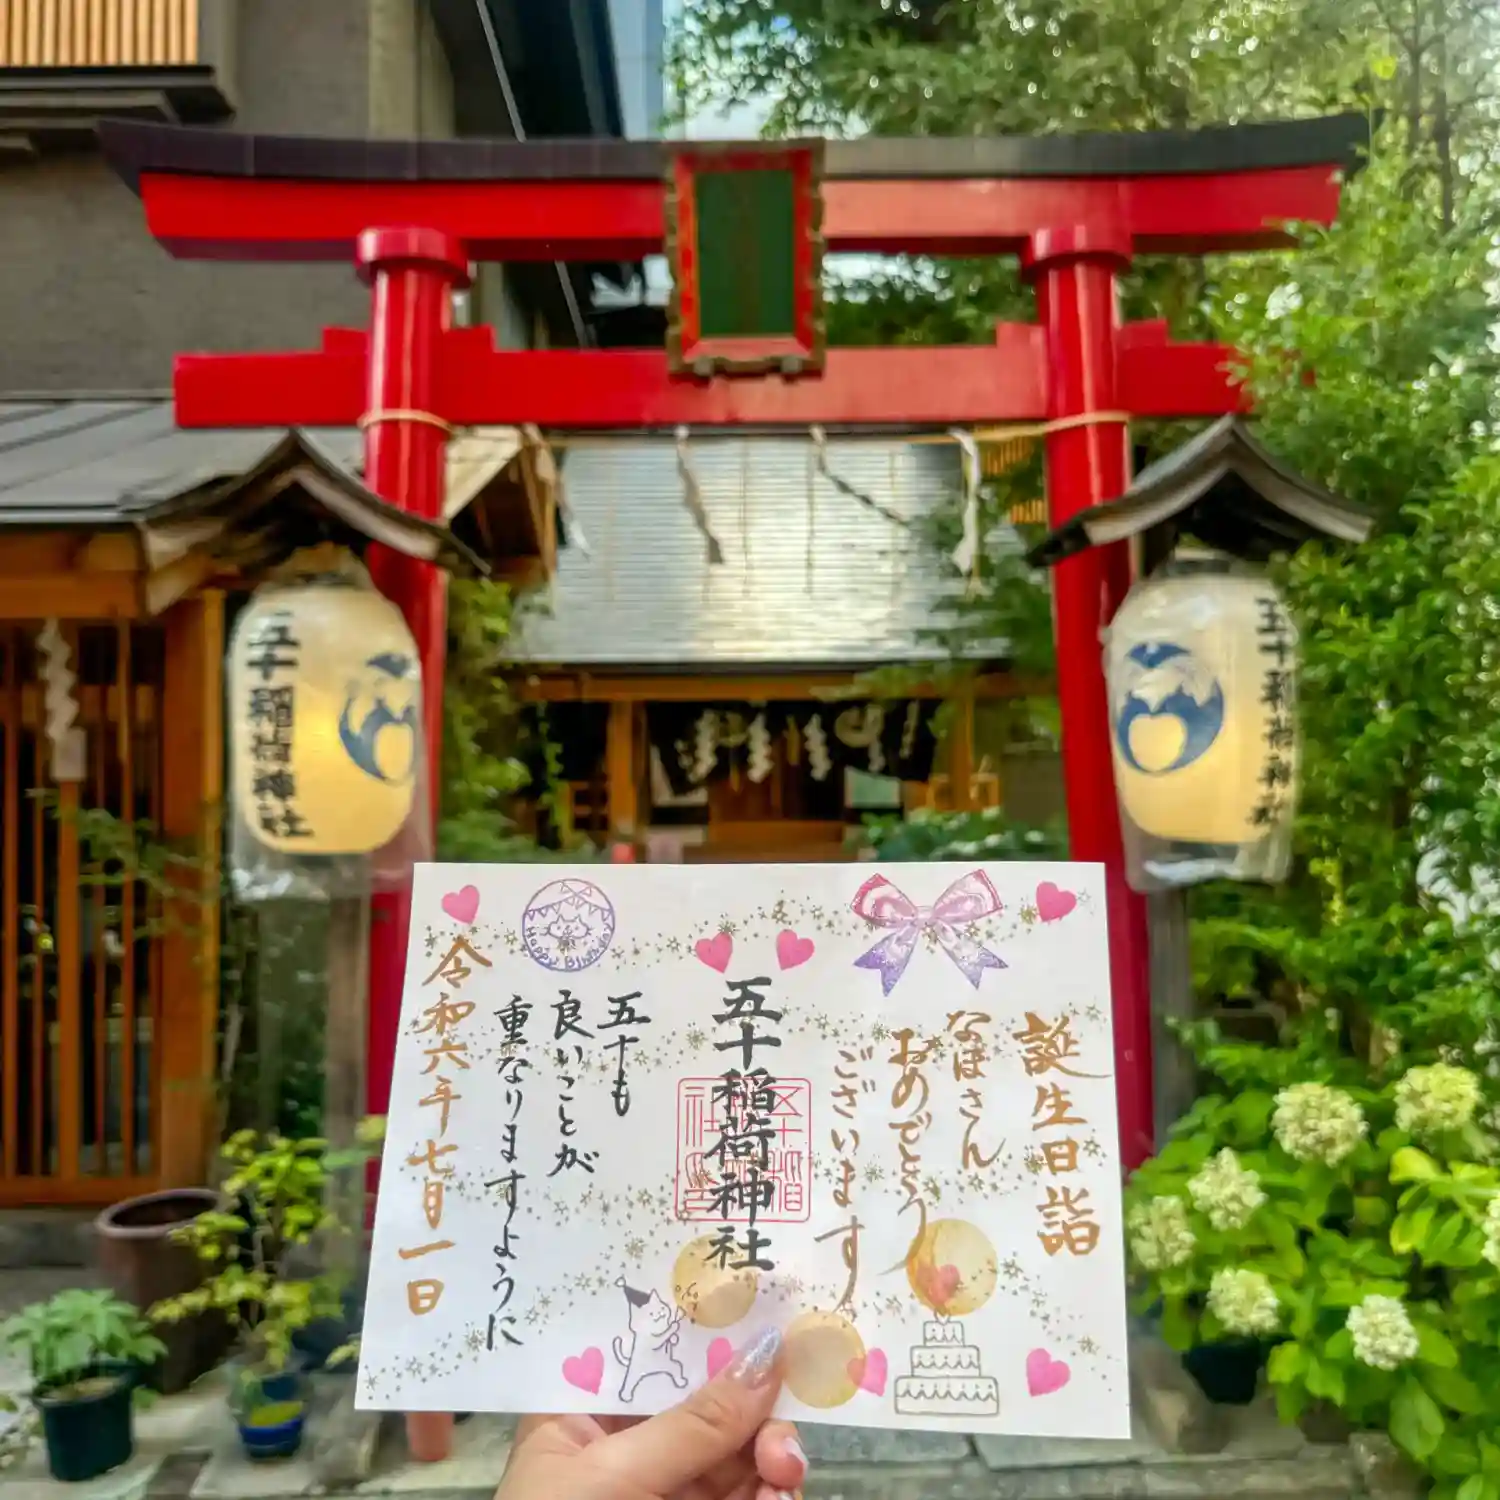 五十稲荷神社
五十稲荷神社
誕生日詣
なほさん
おめでとう
ございます
五十稲荷神社
五十も
良いことが
重なりますように
令和六年七月一日
Happy Birthday